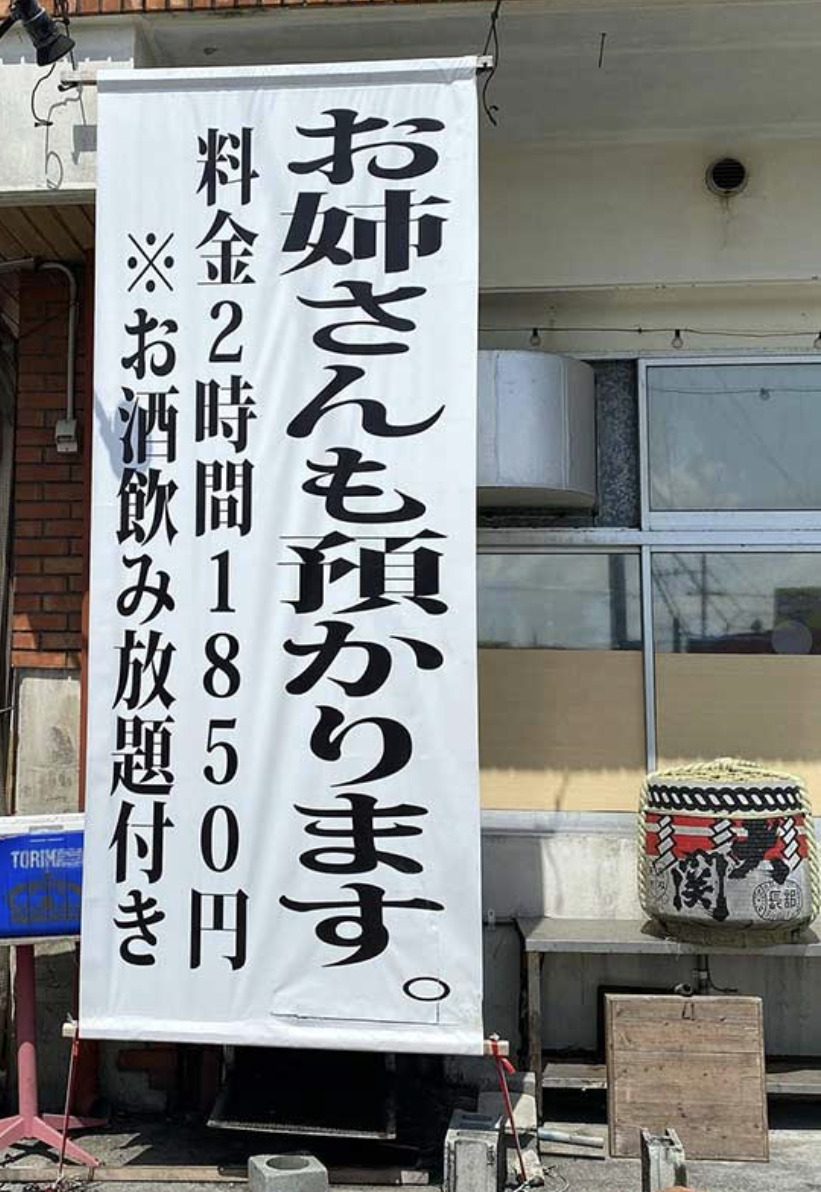 お姉さんも預かります。
料金2時間1850円
※お酒飲み放題付き
TORIM
大関